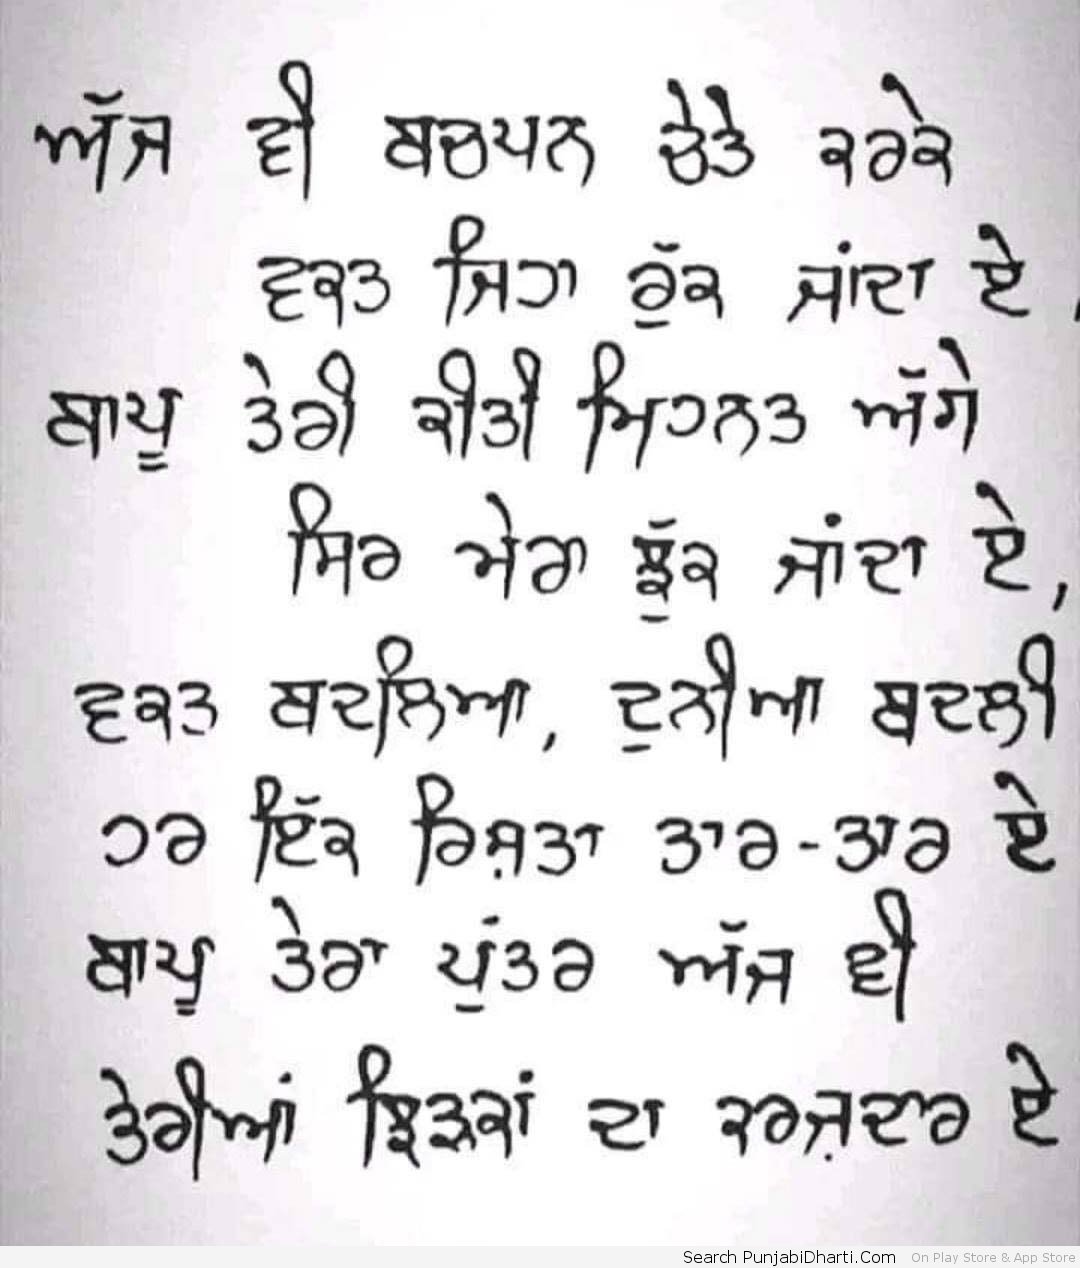 ਅੱਜ ਵੀ ਬਚਪਨ ਚੇਤੇ ਕਰਕੇ
ਵਕਤ ਜਿਹਾ ਰੁੱਕ ਜਾਂਦਾ ਏ,
ਬਾਪੂ ਤੇਰੀ ਕੀਤੀ ਮਿਹਨਤ ਅੱਗੇ
ਸਿਰ ਮੇਰਾ ਝੁੱਕ ਜਾਂਦਾ ਏ,
ਵਕਤ ਬਦਲਿਆ, ਦੁਨੀਆ ਬਦਲੀ
ਹਰ ਇੱਕ ਰਿਸ਼ਤਾ ਤਾਰ-ਤਾਰ ਏ
ਬਾਪੂ ਤੇਰਾ ਪੁੱਤਰ ਅੱਜ ਵੀ
ਤੇਰੀਆਂ ਝਿੜਕਾਂ ਦਾ ਕਰਜ਼ਦਾਰ ਏ
Search PunjabiDharti.Com On Play Store & App Store